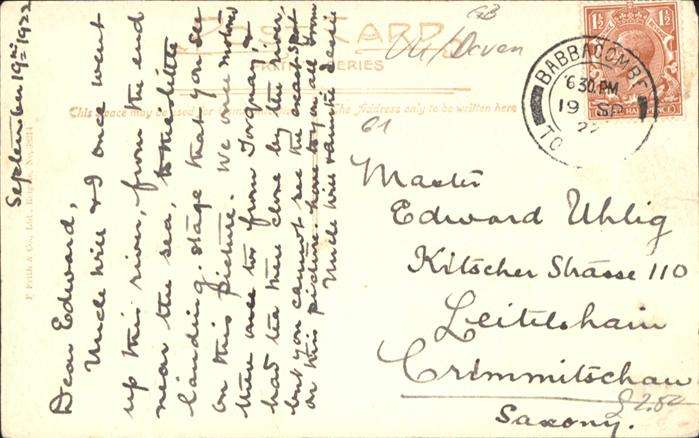 September 19th 1922
Dear Edward,
Uncle Will & I once went
up this river, from the end
near the sea, to the little
landing stage that you see
on this picture. We once motored
there once too from Torquay &
had tea there close by the river,
but you cannot see the exact spot
on this picture. Love to you all from
Uncle Will & auntie
POST CARD
SERIES
This Space may be used for
The Address only to be written here
F. Frith & Co., Ltd., Reigate, No.
GB
Devon
61
1½ 1½
BABBACOMBE
6 30 PM
19 SP
22
TO
Master
Edward Uhlig
Kitscher Strasse 110
Leitelshain
Crimmitschau
Saxony.
£2.50